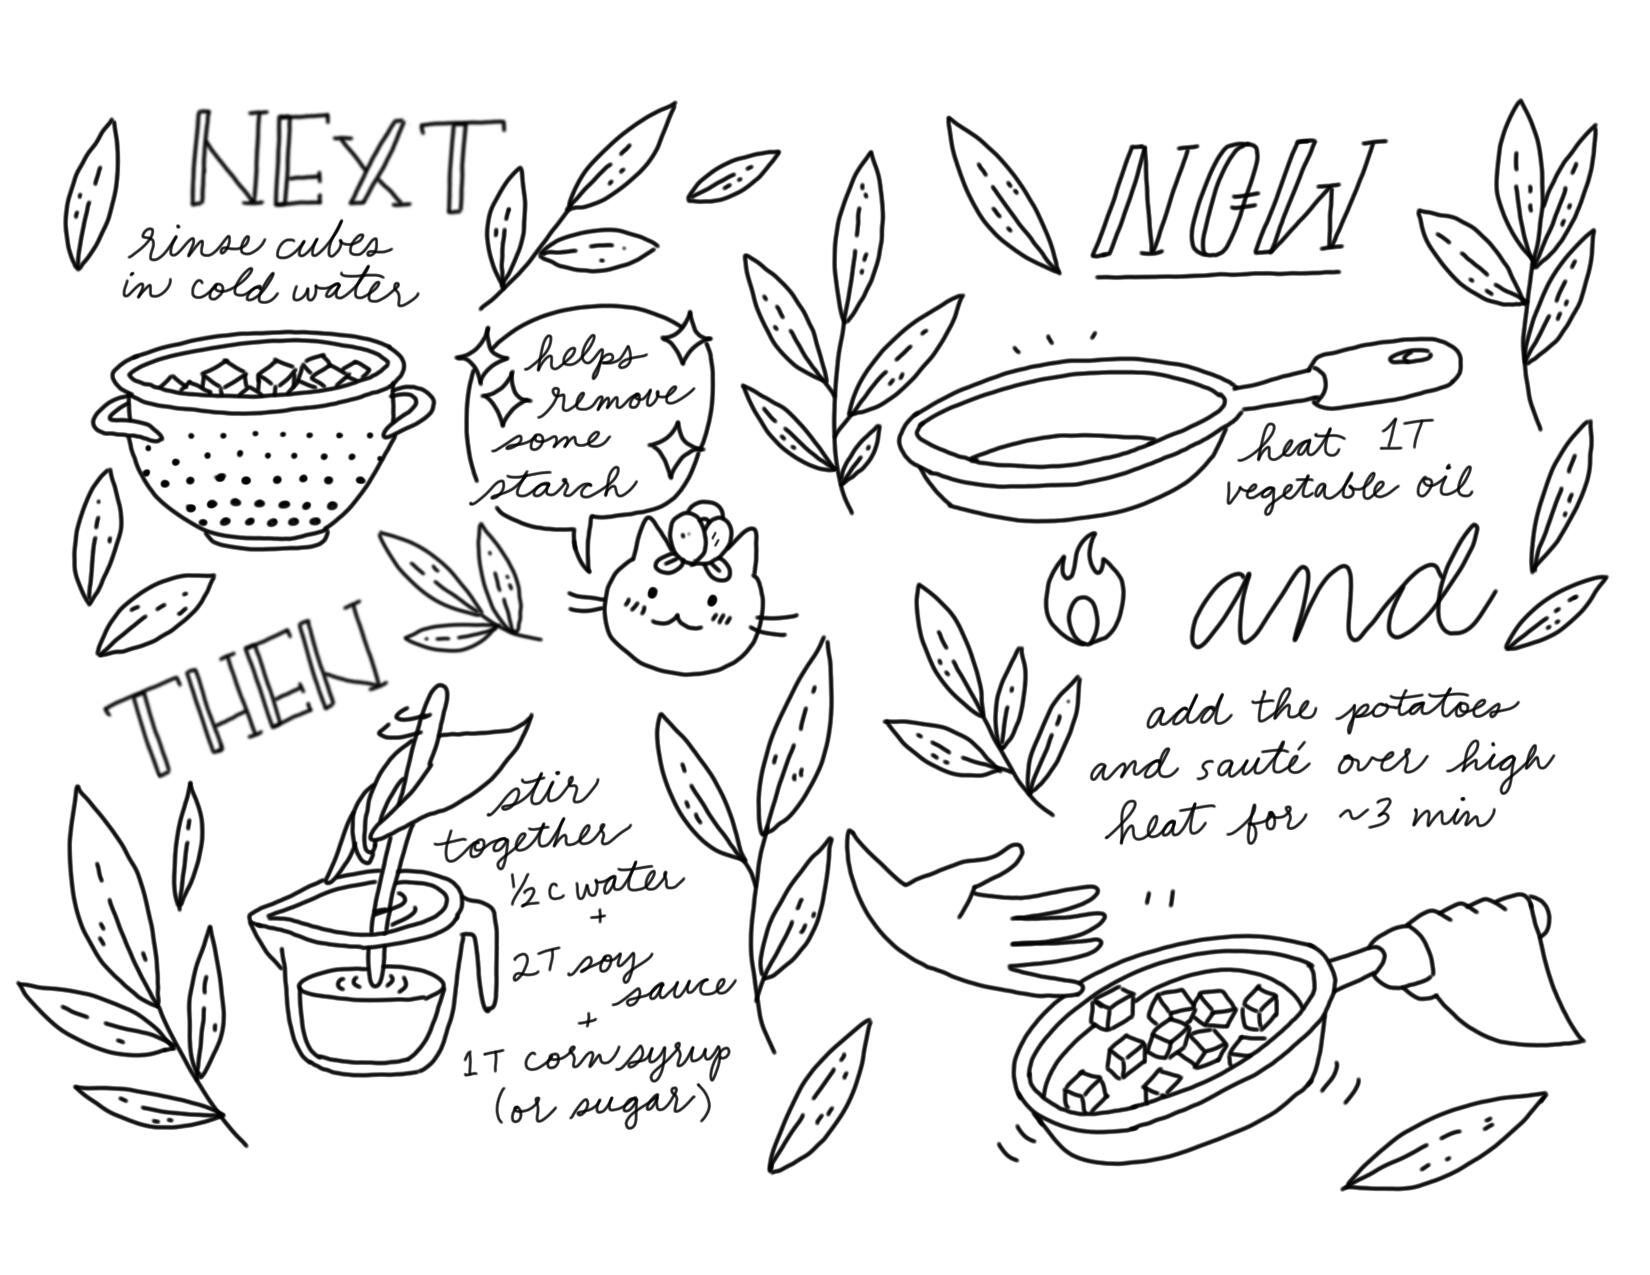 NEXT
rinse cubes
in cold water
helps
remove
some
starch
THEN
stir
together
1/2 c water
+
2T soy
sauce
+
1T corn syrup
(or sugar)
NOW
heat 1T
vegetable oil
and
add the potatoes
and sauté over high
heat for ~3 min